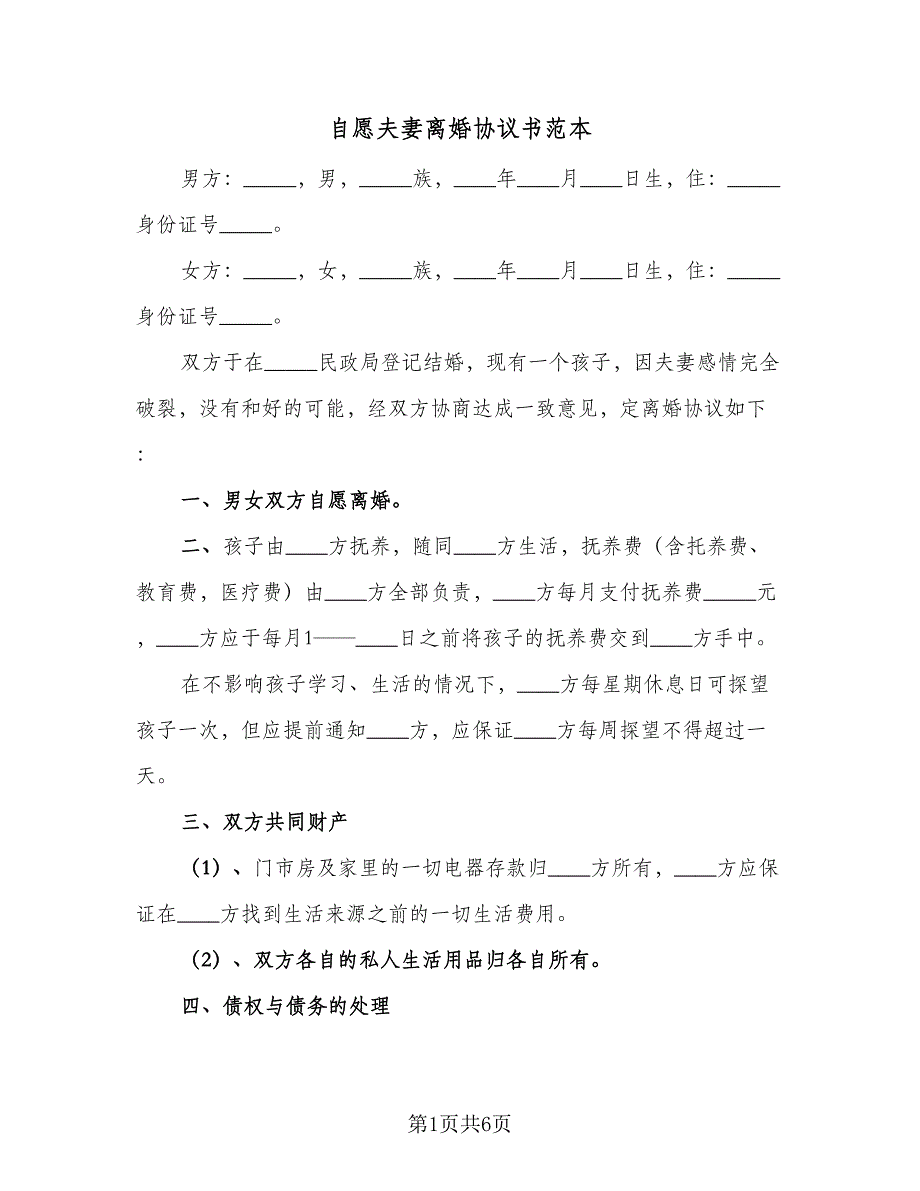 自愿夫妻离婚协议书范本
男方：_____，男，_____族，____年____月____日生，住：_____
身份证号_____。
女方：_____，女，_____族，____年____月____日生，住：_____
身份证号_____。
双方于在_____民政局登记结婚，现有一个孩子，因夫妻感情完全
破裂，没有和好的可能，经双方协商达成一致意见，定离婚协议如下
：
一、男女双方自愿离婚。
二、孩子由____方抚养，随同____方生活，抚养费（含托养费、
教育费，医疗费）由____方全部负责，____方每月支付抚养费_____元
，____方应于每月1——____日之前将孩子的抚养费交到____方手中。
在不影响孩子学习、生活的情况下，____方每星期休息日可探望
孩子一次，但应提前通知____方，应保证____方每周探望不得超过一
天。
三、双方共同财产
（1）、门市房及家里的一切电器存款归____方所有，____方应保
证在____方找到生活来源之前的一切生活费用。
（2）、双方各自的私人生活用品归各自所有。
四、债权与债务的处理
第1页共6页